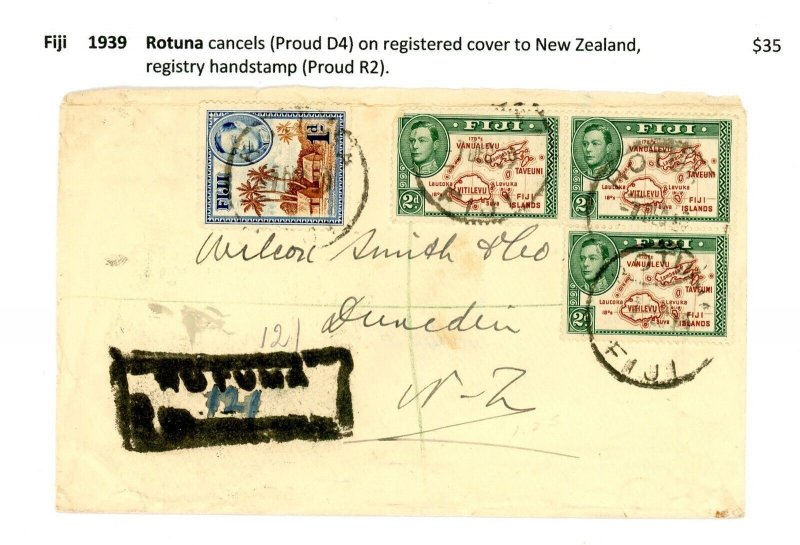 Fiji 1939 Rotuna cancels (Proud D4) on registered cover to New Zealand, $35
registry handstamp (Proud R2).
FIJI 1d
FIJI
178°E
VANUALEVU
TAVEUNI
Lautoka Levuka
18°S VITILEVU FIJI
Suva ISLANDS
2d
FIJI
VANUALEVU
TAVEUNI
Lautoka Levuka
18°S VITILEVU FIJI
Suva ISLANDS
2d
FIJI
VANUALEVU
TAVEUNI
Lautoka Levuka
18°S VITILEVU FIJI
Suva ISLANDS
2d
FIJI
Wilcox Smith & Co
Dunedin
N-Z
121
ROTUMA
121